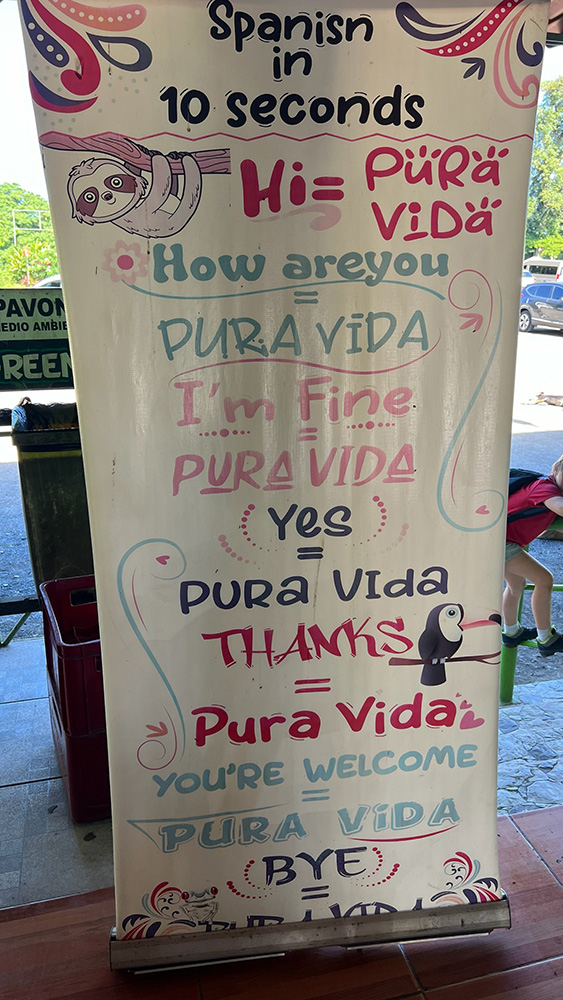 Spanish
in
10 seconds
Hi= PURA
VIDA
How areyou
=
PURA VIDA
I'm Fine
=
PURA VIDA
Yes
=
PURA VIDA
THANKS
=
Pura Vida
YOU'RE WELCOME
=
PURA VIDA
BYE
=
PURA VIDA
PAVON
EDIO AMBIE
REEN